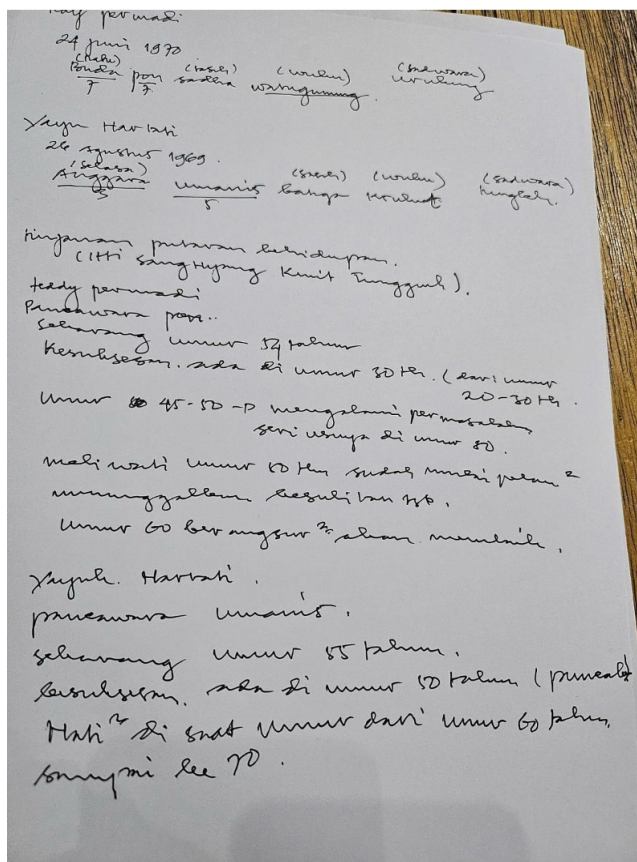 permadi
24 juni 1970
(Rabu) (sasih) (wuku) (sadwara)
Buda pon sadha watugunung urukung
7 7
Yayu Hartati
26 agustus 1969.
(selasa) (sasih) (wuku) (sadwara)
Anggara umanis tungleh.
3 5
tinjauan putaran kehidupan.
(Sanghyang Kunit Tungguh).
teddy permadi
Pancawara pon..
sekarang umur 54 tahun
Kesuksesan ada di umur 30 th. (dari umur
20-30 th.
umur 45-50 → mengalami permasalahan
seriusnya di umur 50.
melewati umur 50 thn sudah mulai pelan²
meninggalkan kesulitan
umur 60 berangsur² akan membaik.
Yayuk Hartati.
pancawara umanis.
sekarang umur 55 tahun.
kesuksesan ada di umur 50 tahun (puncak)
Hati² di saat umur dari umur 60 tahun
sampai ke 70.